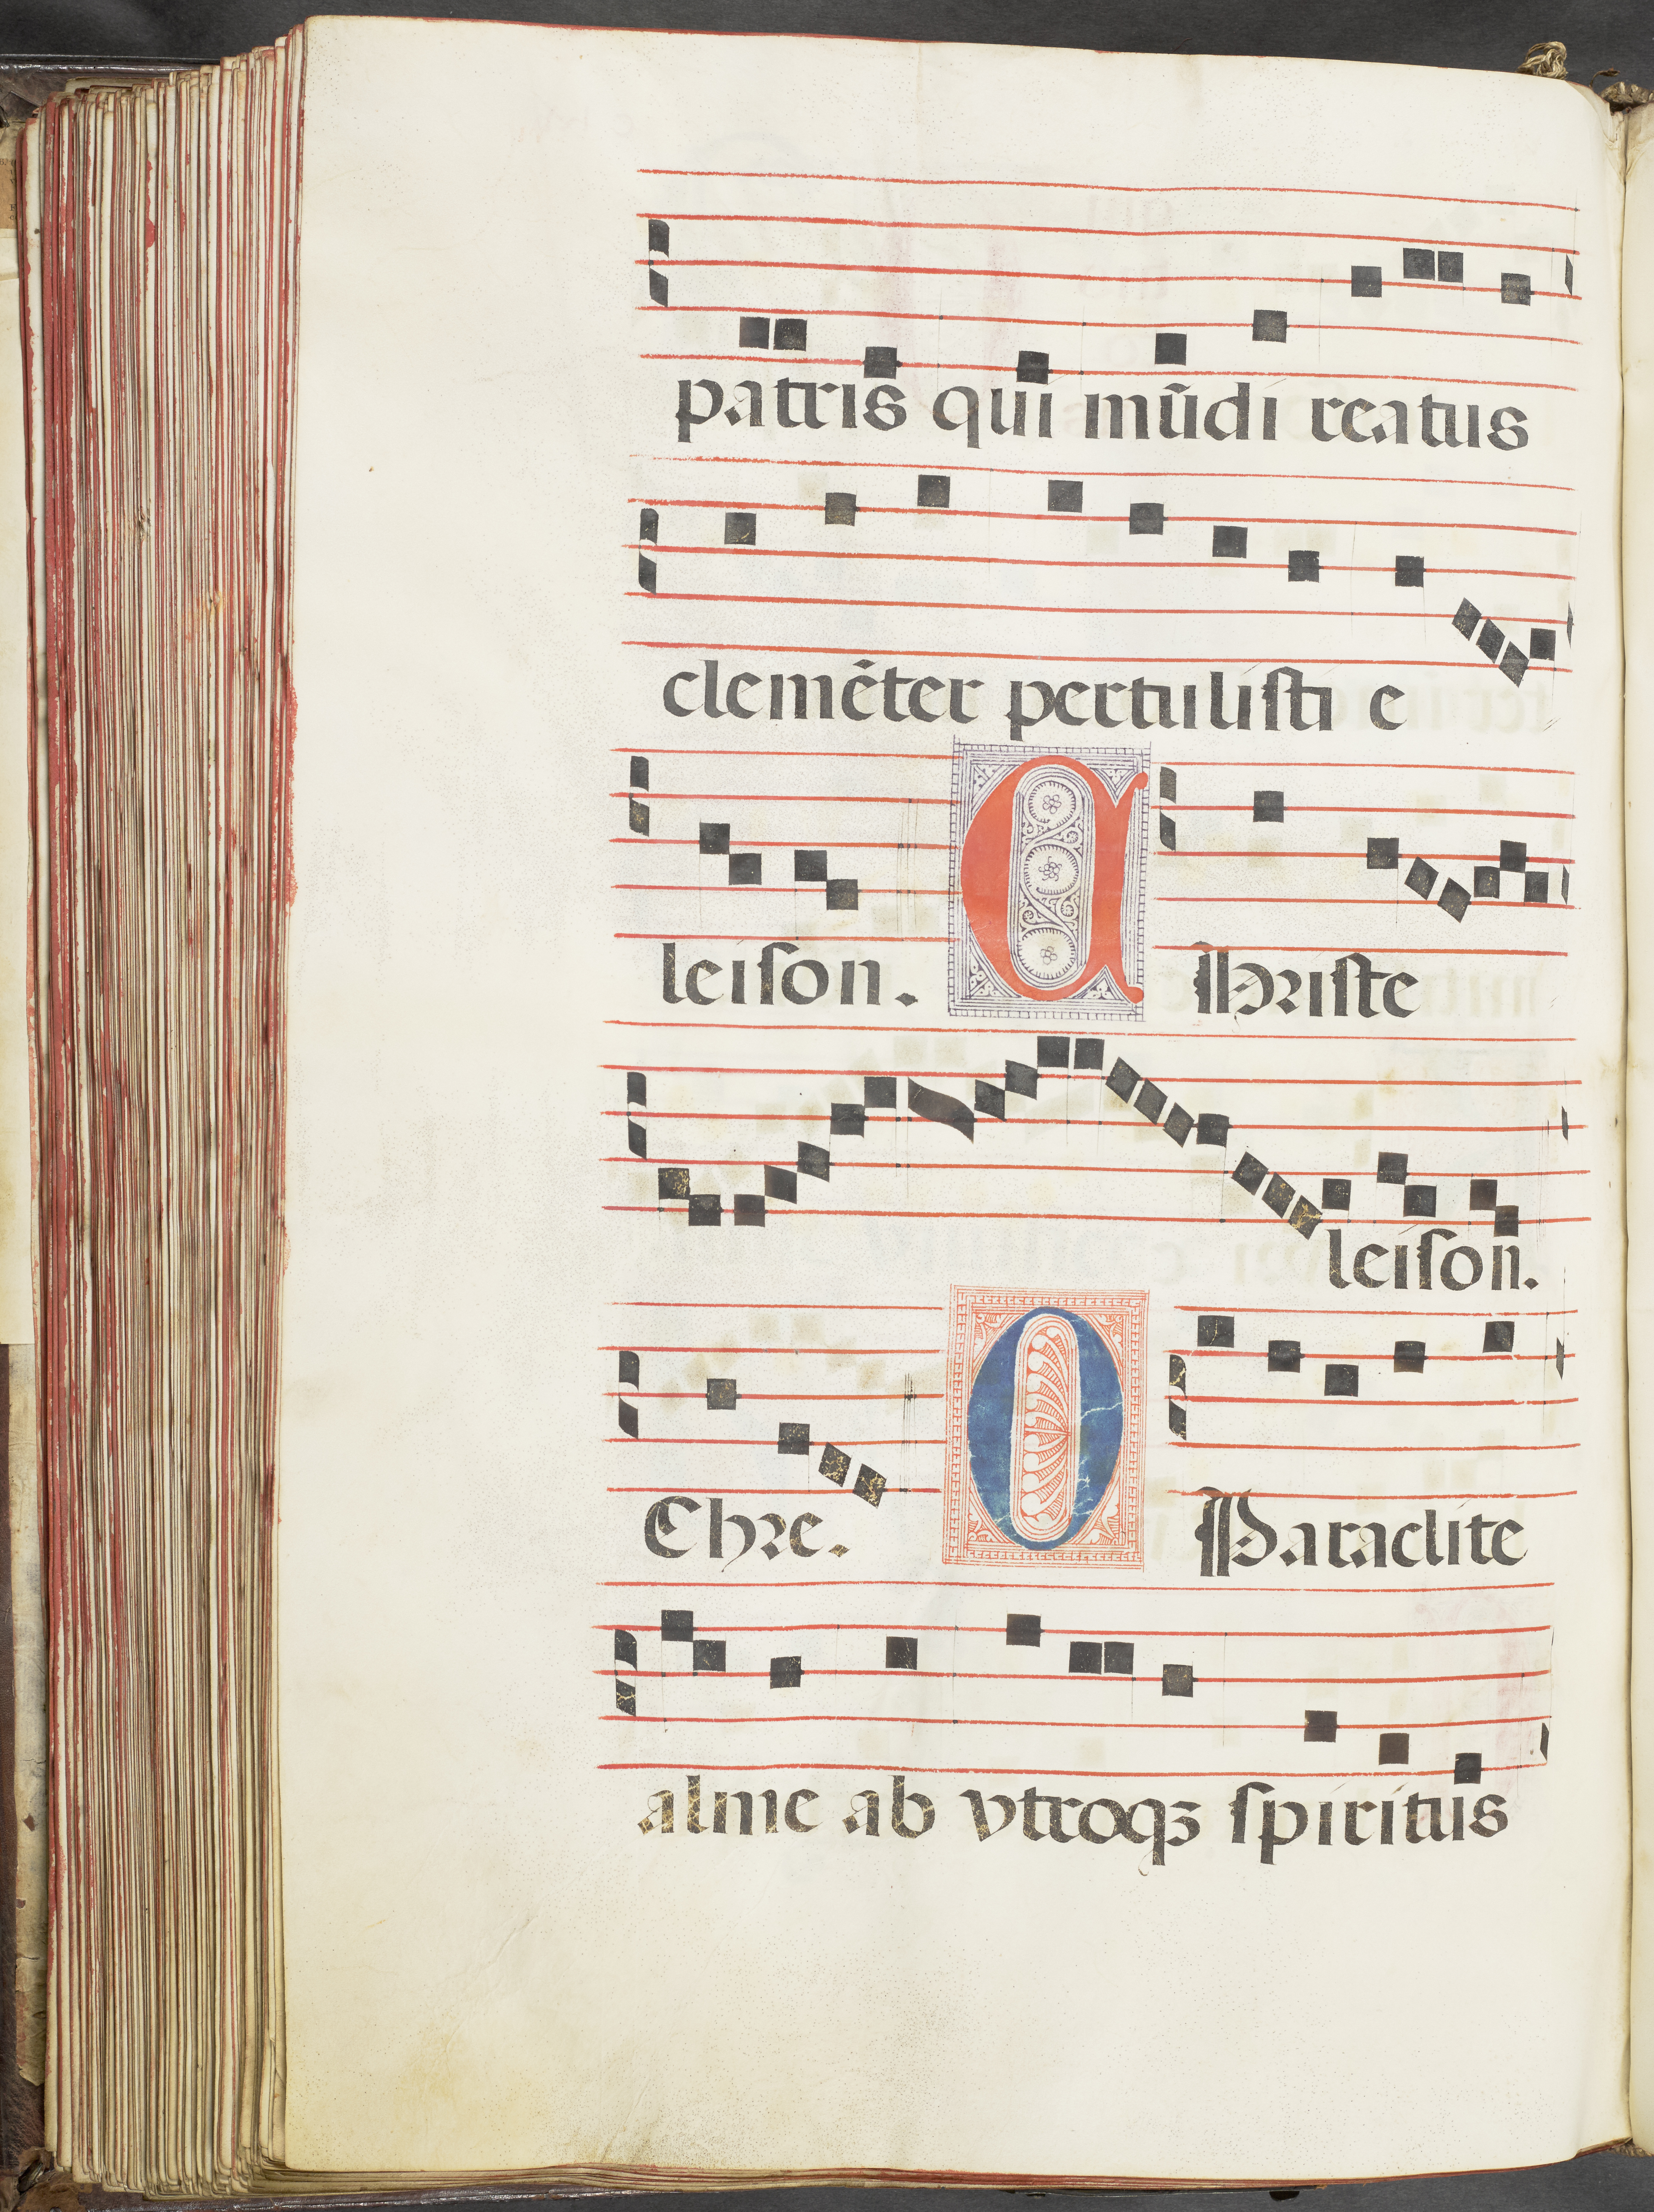 patris qui mũdi reatus
clemẽter pertuliſti e
leiſon. C Hriſte
leiſon.
Chre. O Paraclite
alme ab vtroqꝫ ſpiritus